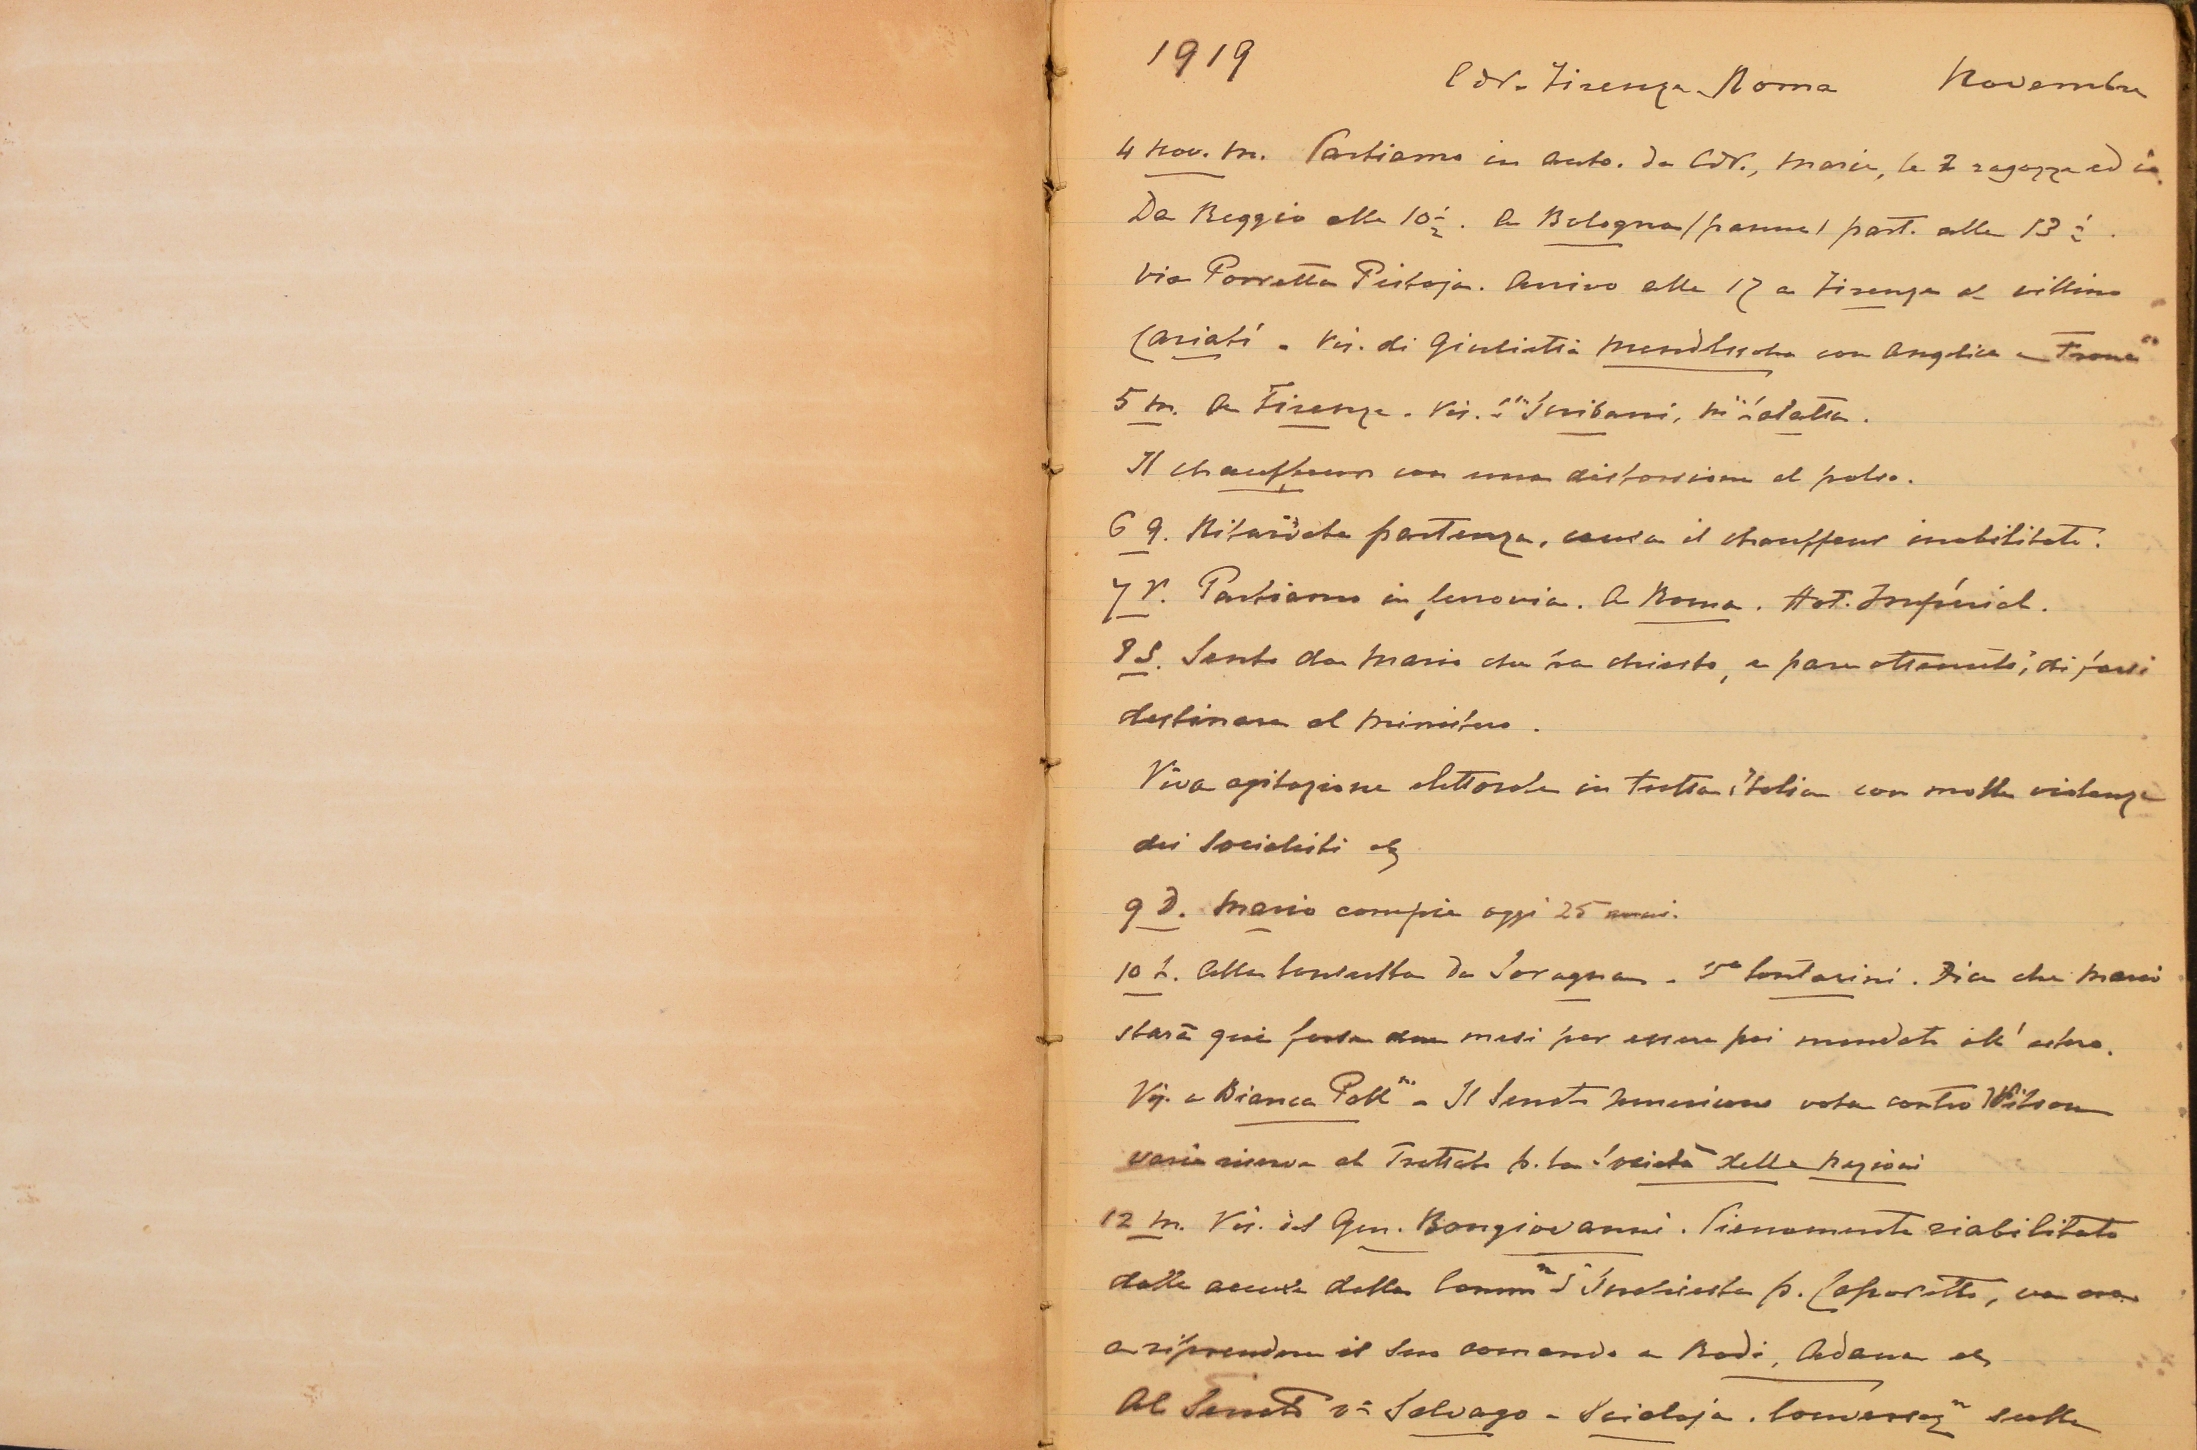 1919
CdV. Firenze. Roma Novembre
4 nov. M. Partiamo in auto. da CdV., Maria, le 2 ragazze ed io.
Da Reggio alle 10 1/2. A Bologna (panne) part. alle 13 1/2.
via Porretta Pistoja. Arrivo alle 17 a Firenze al villino
Cariati - Vis. di Giulietta Mendelssohn con Angelica e
5 M. A Firenze. Vis.
Il chauffeur con una distorsione al polso.
6 G. Ritardata partenza, causa il chauffeur inabilitato.
7 V. Partiamo in ferrovia. A Roma. Hot. Impérial.
8 S. Sento da Mario che ha chiesto, e pare ottenuto, di farsi
destinare al Ministero.
Viva agitazione elettorale in tutta Italia con molte violenze
dei Socialisti etc
9 D. Mario compie oggi 25 anni.
10 L. Alla Consulta da Soragna - Contarini. Dice che Mario
starà qui forse due mesi per essere poi mandato all'estero.
Vis. a Bianca - Il Senato Americano vota contro Wilson
varie riserve al Trattato p. la Società delle Nazioni
12 M. Vis. del Gen. Bongiovanni. Pienamente riabilitato
dalle accuse della Commne d'Inchiesta p. Caporetto, va ora
a riprendere il suo comando a Rodi, Adana etc
Al Senato Salvago - Scialoja. Conversazne sulla